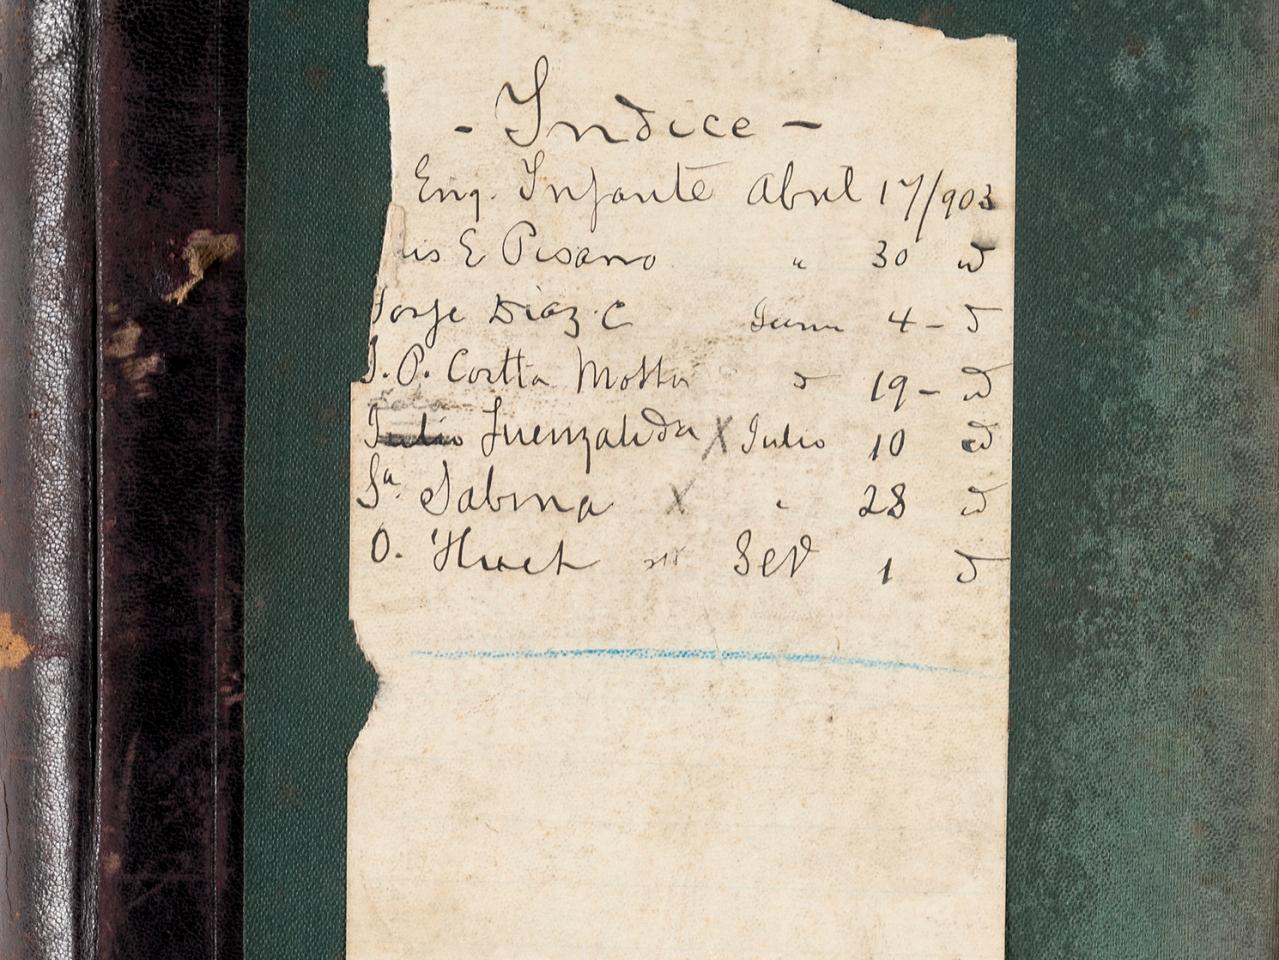 - Indice -
Eng. Infante Abril 17/903
is E Pisano " 30 d
Jorge Diaz C Junio 4 - d
J. P. Cortta Motta d 19 - d
Julio Fuenzalida X Julio 10 d
Sa. Sabina X " 28 d
O. Huet Sep 1 d